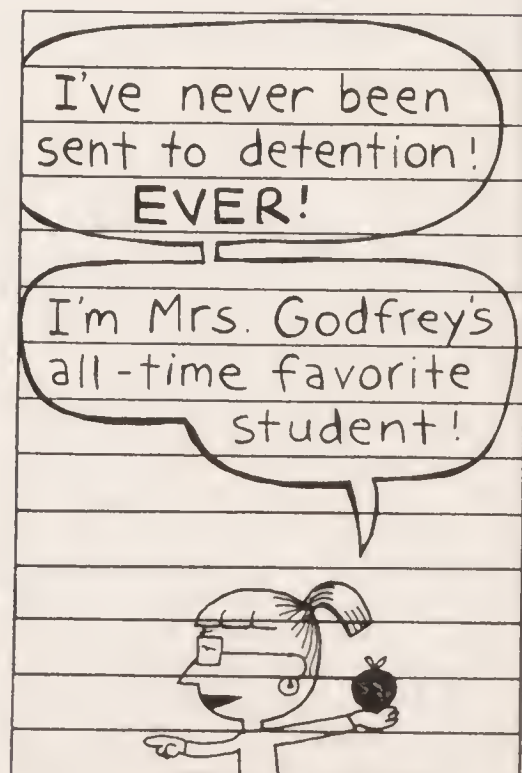 I've never been
sent to detention!
EVER!
I'm Mrs. Godfrey's
all-time favorite
student!